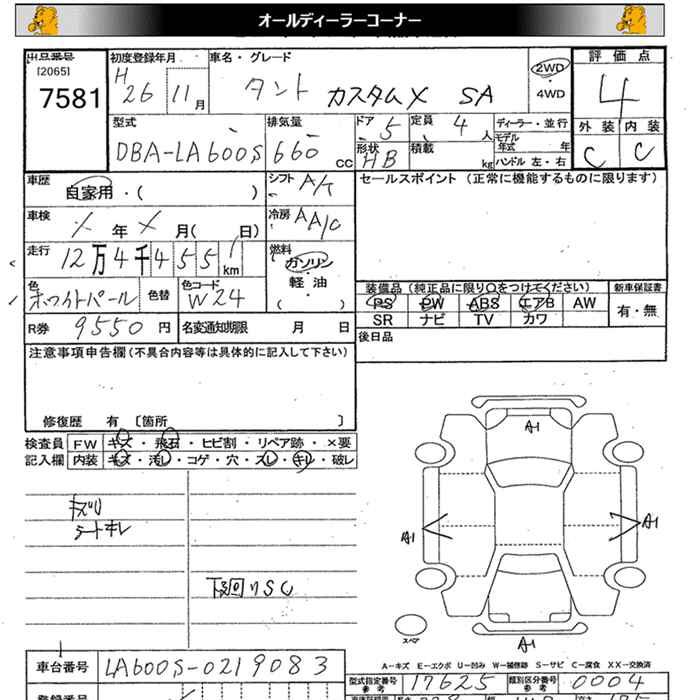 オールディーラーコーナー
出品番号 初度登録年月 車名・グレード 評価点
[2065] H 26 11月 タント カスタムX SA 2WD 4
7581 ・ 4WD
外装 内装
型式 排気量 ドア 5 定員 4人 ディーラー・並行 C C
モデル年式 年
DBA-LA600S 660 CC 形状 HB 積載 kg ハンドル 左・右
車歴 自家用・( ) シフト A/T セールスポイント (正常に機能するものに限ります)
車検 X年X月( 日) 冷房 AA/C
走行 12万4千455km 燃料 ガソリン・軽油・( )
色 ホワイトパール 色替 色コード W24
装備品 (純正品に限り○をつけてください) 新車保証書
PS PW ABS エアB AW 有・無
SR ナビ TV カワ
R券 9550円 名変通知期限 月 日
後日品
注意事項申告欄(不具合内容等は具体的に記入して下さい)
修復歴 有 〔箇所 〕
検査員 FW キズ・飛石・ヒビ割・リペア跡・×要
記入欄 内装 キズ・汚レ・コゲ・穴・スレ・キレ・破レ
キズリ
シートキレ
下回りSC
A1
A1
A1
A1
スペア
A-キズ E-エクボ U-凹み W-補修跡 S-サビ C-腐食 XX-交換済
車台番号 LA600S-0219083
型式指定番号 参考 17625 類別区分番号 参考 0004